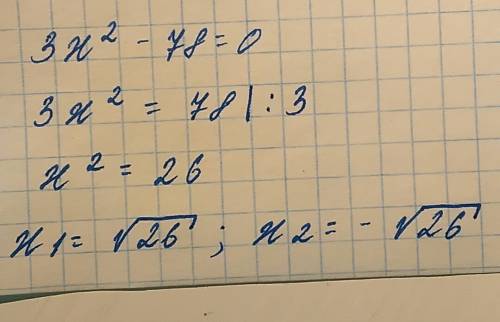 3x² - 78 = 0
3x² = 78 | : 3
x² = 26
x1 = √26 ; x2 = - √26